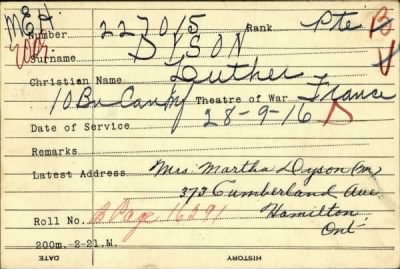 M.E.H.
Number 227015 Rank Pte B
Surname DYSON V
Christian Name Luther
10 Bn Can Inf Theatre of War France
Date of Service 28-9-16
Remarks
Latest Address Mrs. Martha Dyson (M)
373 Cumberland Ave
Roll No. B Page 16291 Hamilton
Ont
200m.-2-21.M.
DATE HISTORY